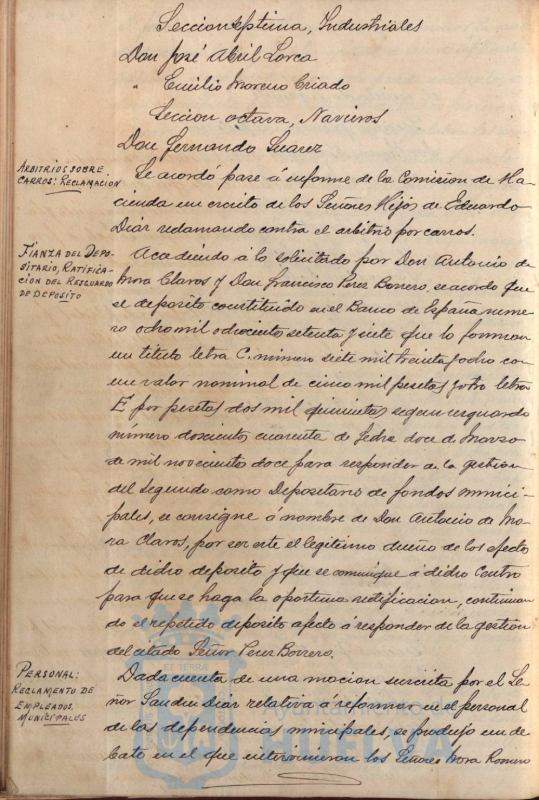 Seccion septima, Industriales
Don José Abril Lorca
" Emilio Moreno Criado
Seccion octava, Navieros
Don Fernando Suarez
ARBITRIOS SOBRE
CARROS: RECLAMACION
Se acordó pase á informe de la Comision de Ha-
cienda un escrito de los Señores Hijos de Eduardo
Diaz reclamando contra el arbitrio por carros.
FIANZA DEL DEPO-
SITARIO, RATIFICA-
CIÓN DEL RESGUARDO
DE DEPOSITO
Accediendo á lo solicitado por Don Antonio de
Mora Claros y Don Francisco Perez Borrero, se acordo que
el deposito constituido en el Banco de España nume-
ro ocho mil ochocientos setenta y siete que lo forman
un titulo letra C. número siete mil treinta y ocho con
un valor nominal de cinco mil pesetas y otro letra
E por pesetas dos mil quinientas segun resguardo
número doscientos cuarenta de fecha doce de Marzo
de mil novecientos doce para responder de la gestion
del segundo como Depositario de fondos munici-
pales, se consigne á nombre de Don Antonio de Mo-
ra Claros, por ser este el legitimo dueño de los efectos
de dicho deposito y que se comunique á dicho Centro
para que se haga la oportuna rectificacion, continuan-
do el repetido deposito afecto á responder de la gestion
del citado Señor Perez Borrero.
PERSONAL:
REGLAMENTO DE
EMPLEADOS
MUNICIPALES
Dada cuenta de una mocion suscrita por el Se-
ñor Diaz relativa á reformar en el personal
de las dependencias municipales, se produjo un de-
bate en el que intervinieron los Señores Mora Romero
ET TERRÆ
Ayuntamiento de
HUELVA